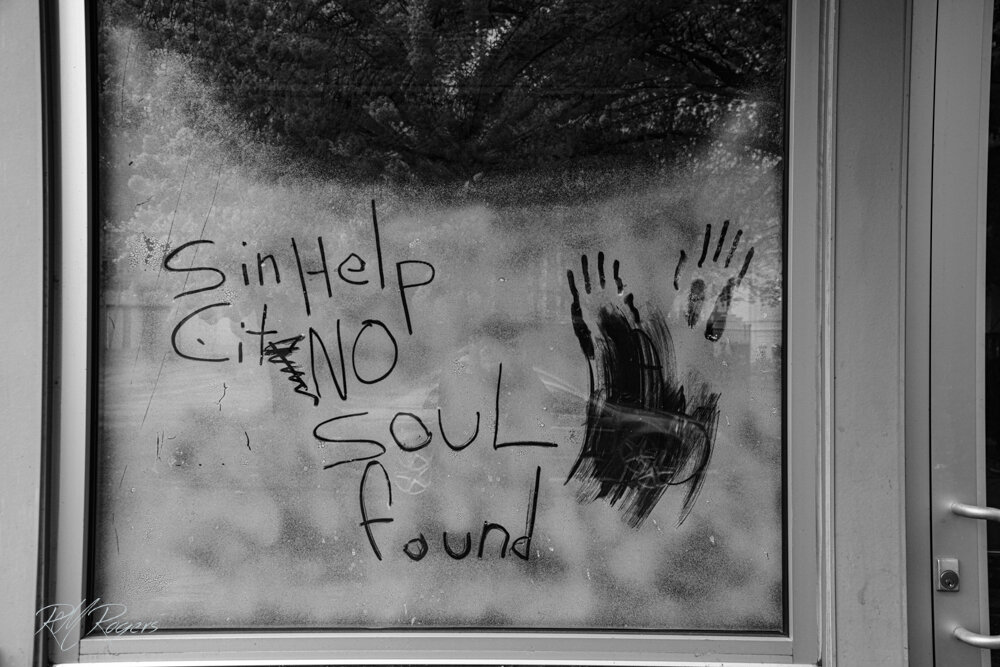 Sin Help
Cit NO
SOUL
found
RM Rogers